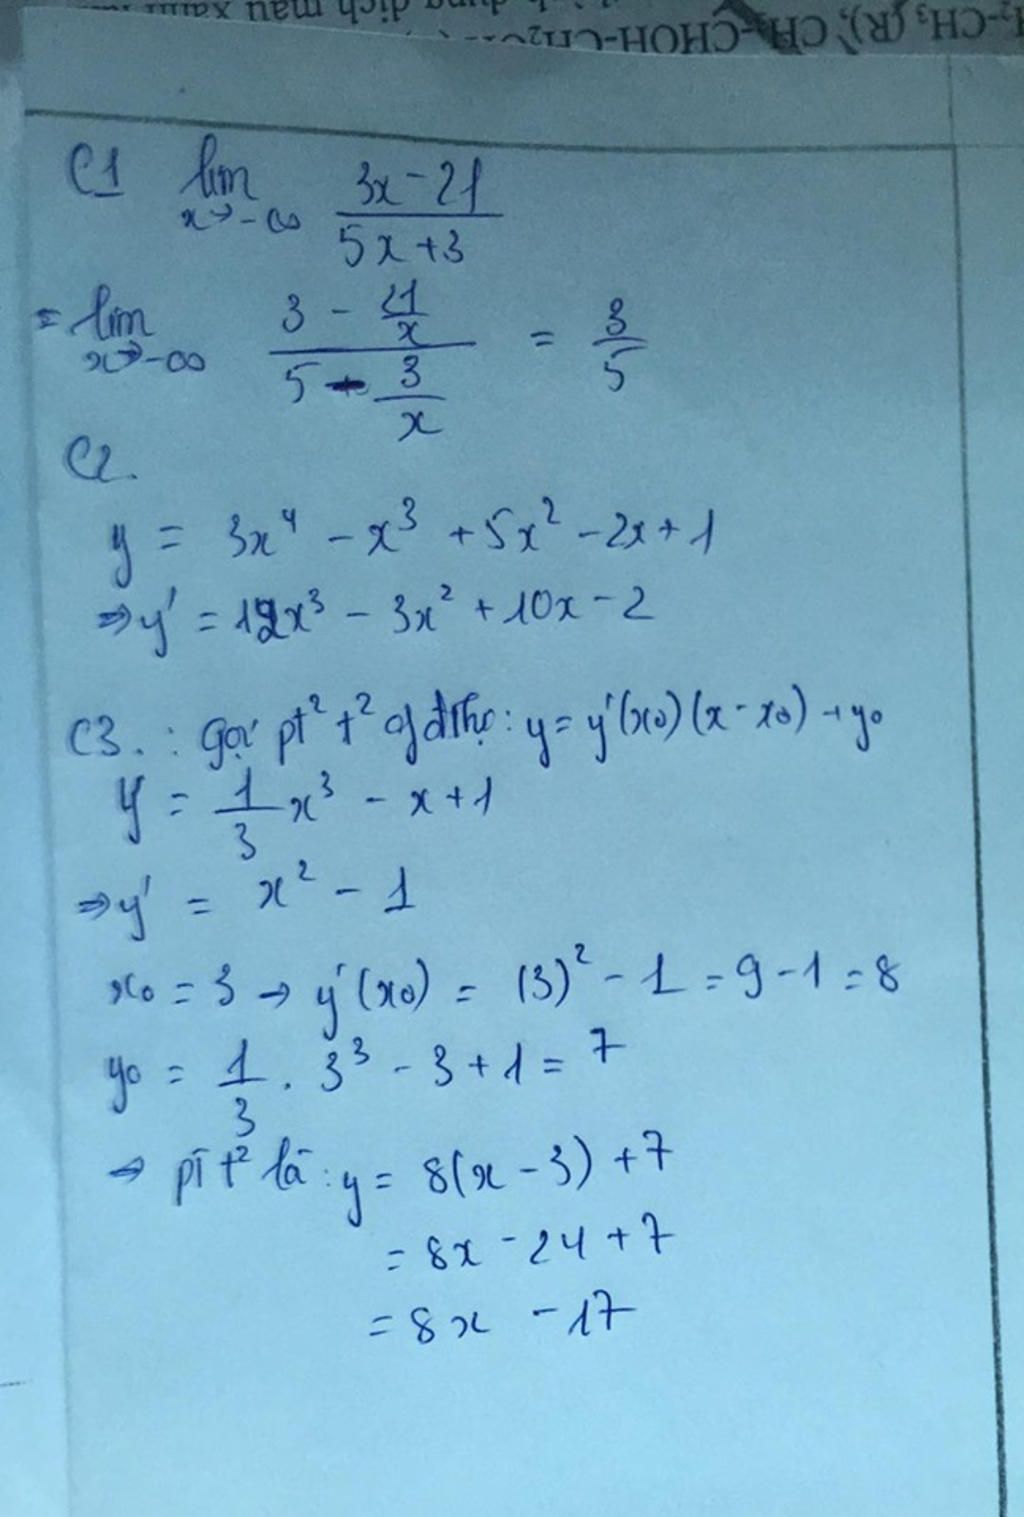 C1 lim x→-∞ (3x - 21)/(5x + 3)
= lim x→-∞ (3 - 21/x)/(5 + 3/x) = 3/5
C2.
y = 3x⁴ - x³ + 5x² - 2x + 1
⇒ y' = 12x³ - 3x² + 10x - 2
C3. : Gọi pt² t² của đthị: y = y'(x₀)(x - x₀) + y₀
y = 1/3 x³ - x + 1
⇒ y' = x² - 1
x₀ = 3 → y'(x₀) = (3)² - 1 = 9 - 1 = 8
y₀ = 1/3 . 3³ - 3 + 1 = 7
→ pt t² là: y = 8(x - 3) + 7
= 8x - 24 + 7
= 8x - 17